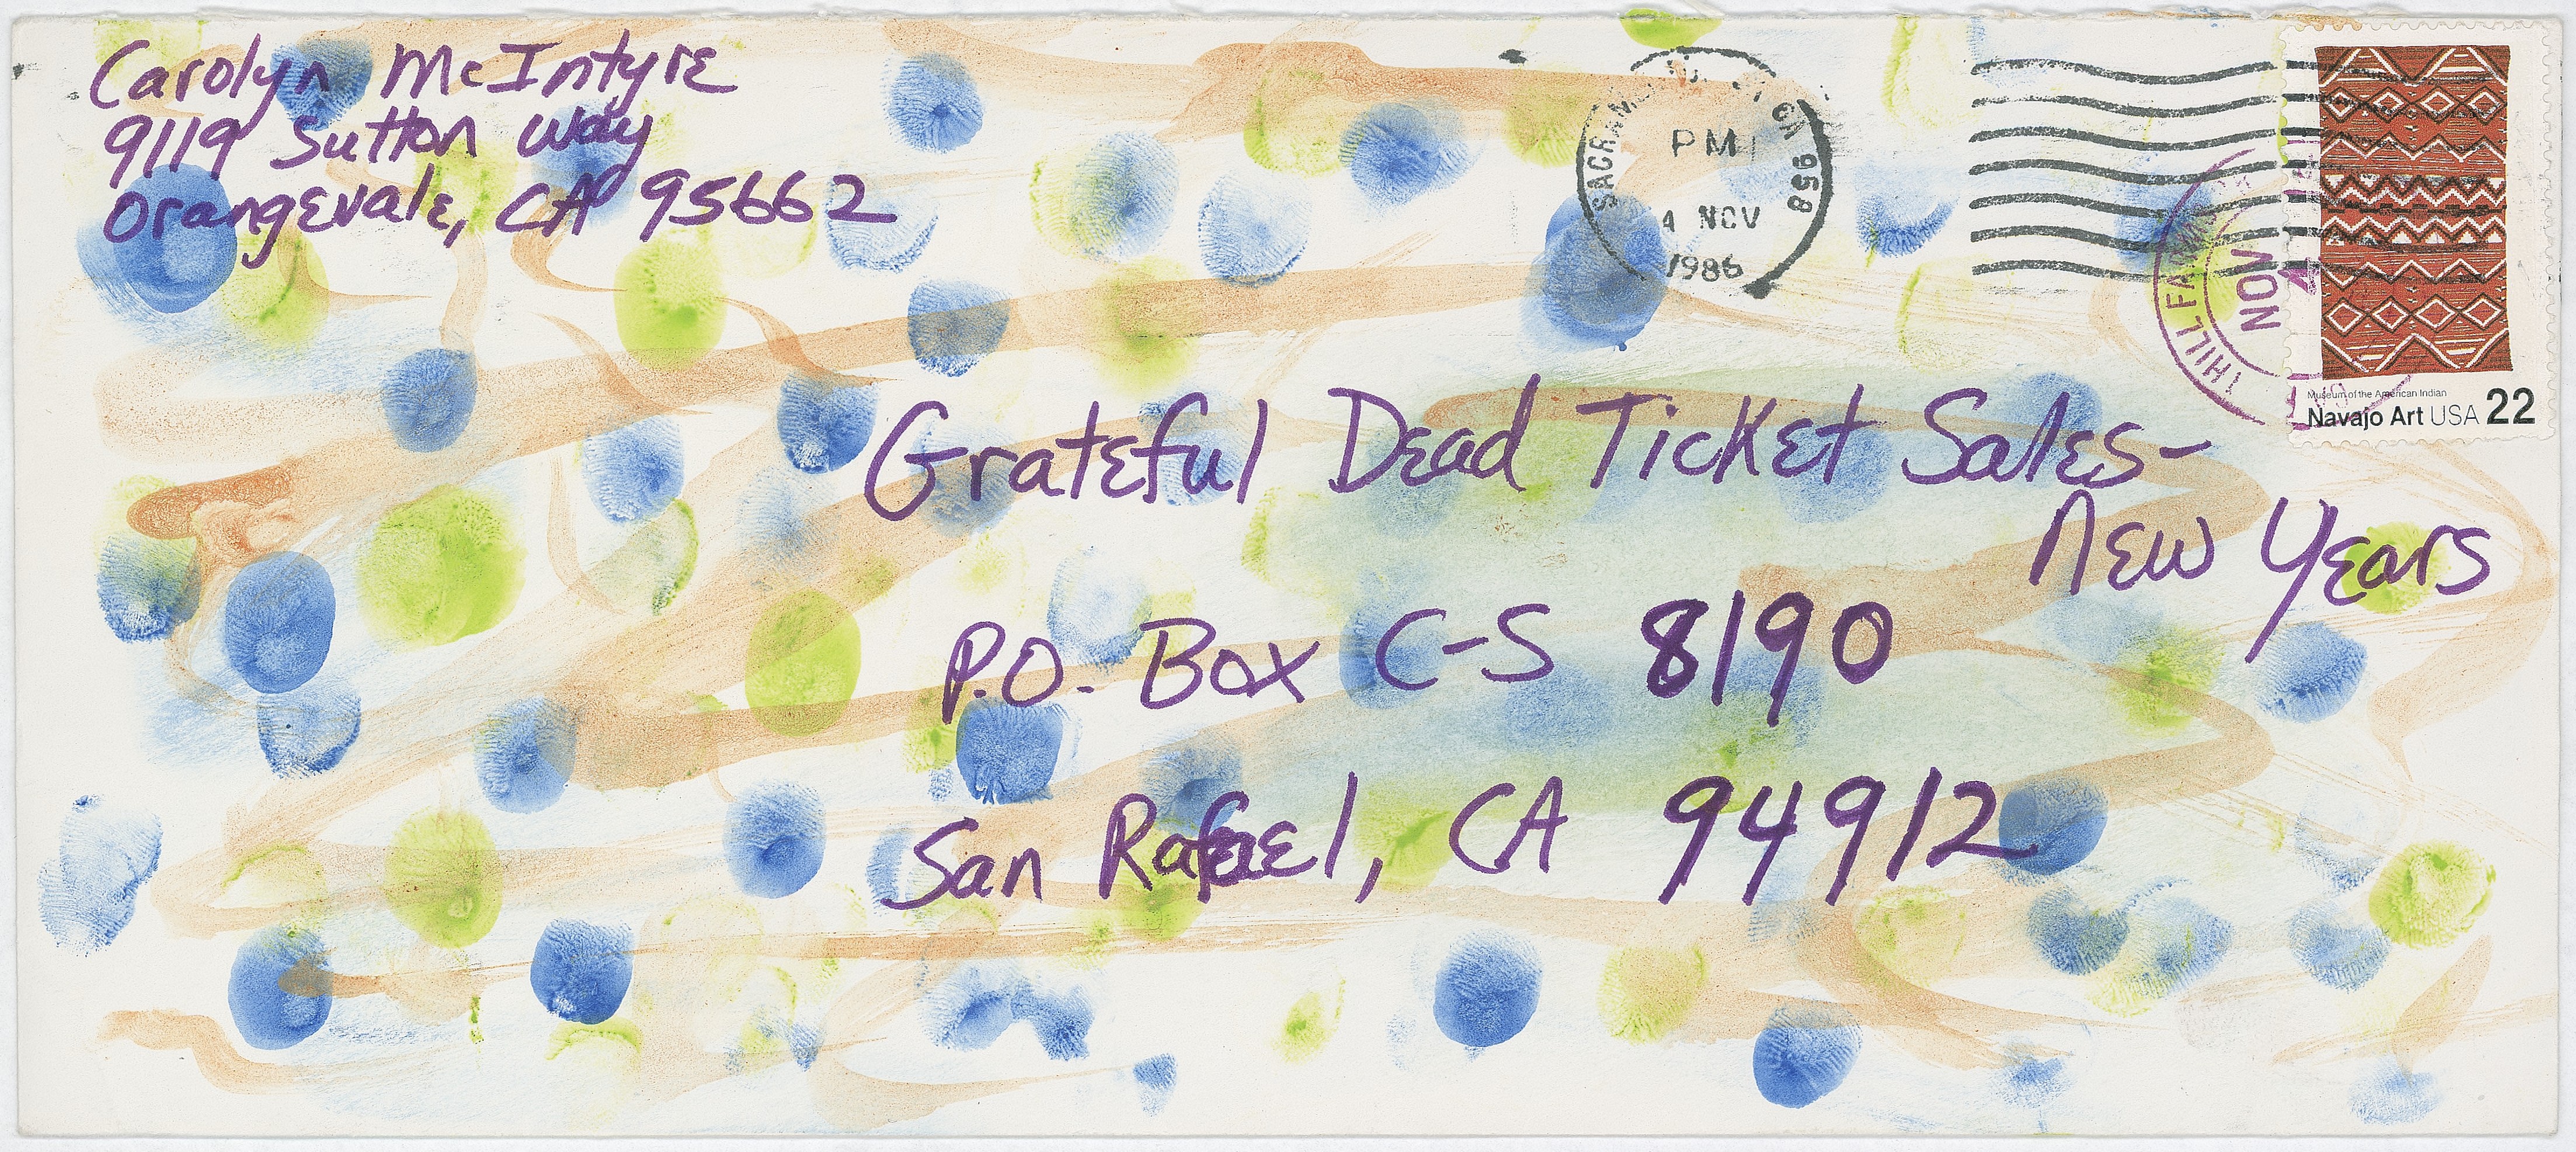 Carolyn McIntyre
9119 Sutton Way
Orangevale, CA 95662
PM
4 NOV
1986
CA 958
NOV
Museum of the American Indian
Navajo Art USA 22
Grateful Dead Ticket Sales-
New Years
P.O. Box C-S 8190
San Rafael, CA 94912